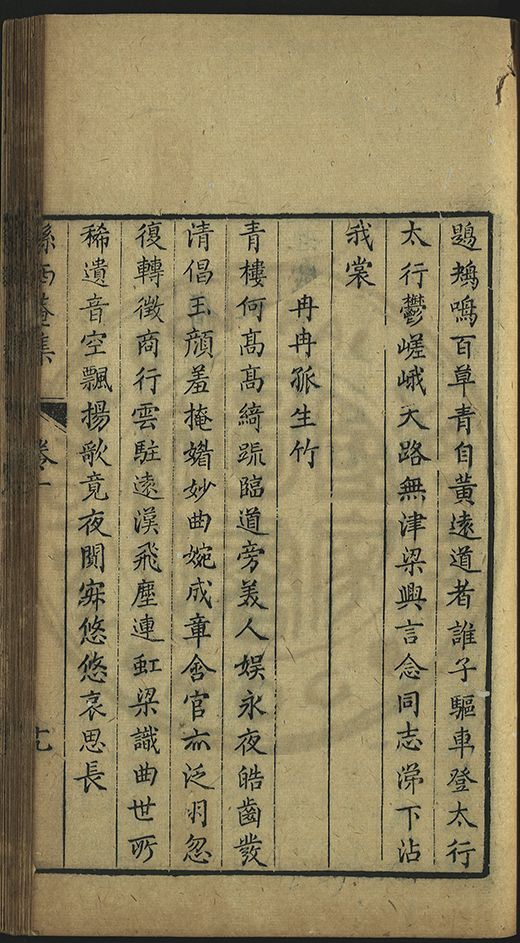 鶗鴂鳴百草青自黃遠道者誰子驅車登太行
太行鬱嵯峨天路無津梁興言念同志涕下沾
我裳
冉冉孤生竹
青樓何髙髙綺疏臨道旁美人娱永夜皓齒發
清倡玉顔羞掩媚妙曲婉成章含宫亦泛羽忽
復轉徵商行雲駐遠漢飛塵連虹梁識曲世所
稀遺音空飄揚歌竟夜闃寂悠悠哀思長
孫西菴集 卷一